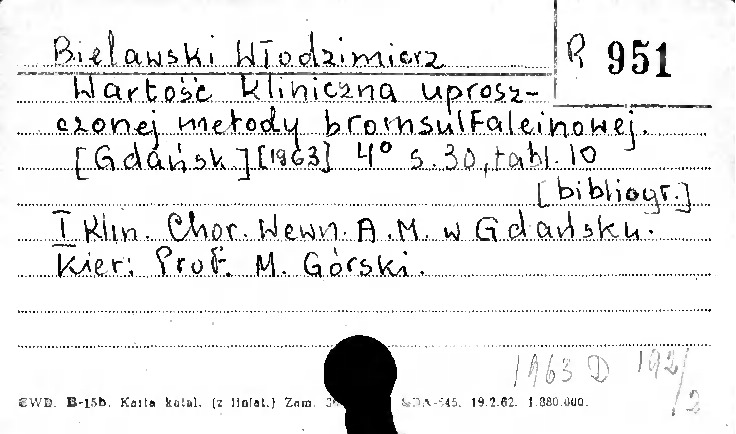 Bielawski Włodzimierz
R 951
Wartość kliniczna uprosz-
czonej metody bromsulfaleinowej.
[Gdańsk] [1963] 4° s. 30, tabl. 10
[bibliogr.]
I Klin. Chor. Wewn. A.M. w Gdańsku.
Kier: Prof. M. Górski.
1963 D 192/2
CWD. B-15b. Karta katal. (z liniat.) Zam. GDA-545. 19.2.62. 1.880.000.